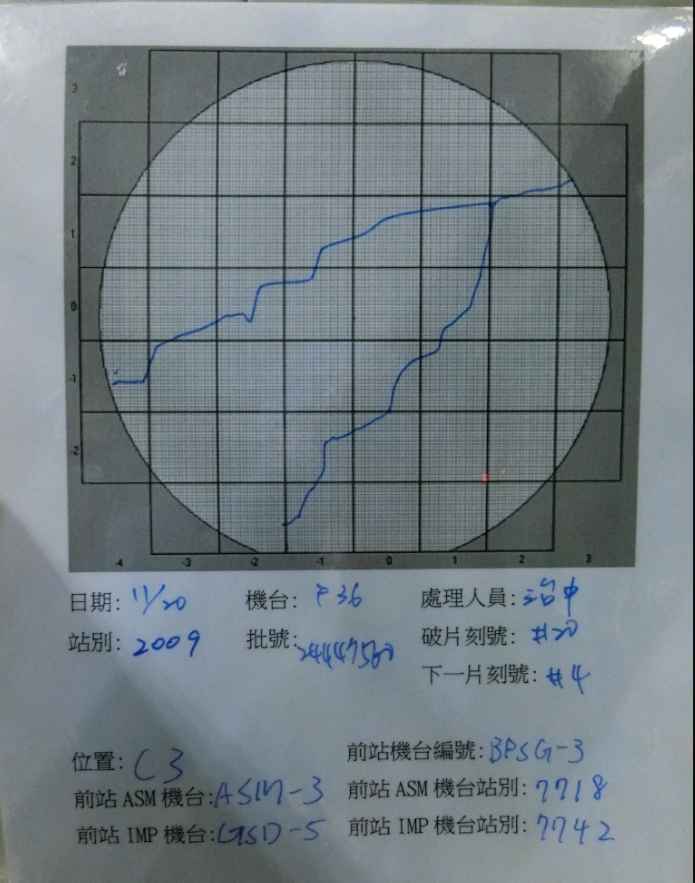 3
2
1
0
-1
-2
-4 -3 -2 -1 0 1 2 3
日期: 11/20 機台: F36 處理人員: 治中
站別: 2009 批號: 24447560 破片刻號: #20
下一片刻號: #4
位置: C3 前站機台編號: BPSG-3
前站 ASM 機台: ASM-3 前站 ASM 機台站別: 7718
前站 IMP 機台: GSD-5 前站 IMP 機台站別: 7742